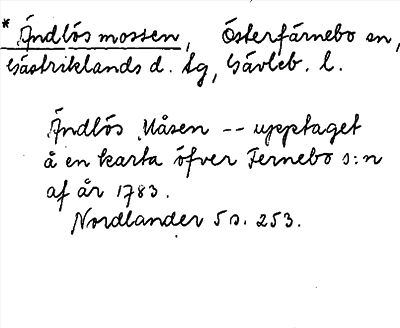 * Ändlösmossen, Österfärnebo sn,
Gästriklands d. tg, Gävleb. l.
Ändlös Måsen -- upptaget
å en karta öfver Fernebo s:n
af år 1783.
Nordlander 5 s. 253.